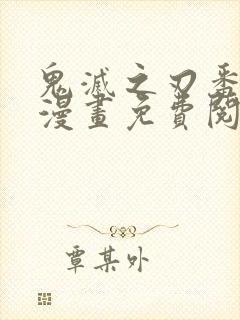 鬼滅之刃番
漫畫免費閱
覃某外